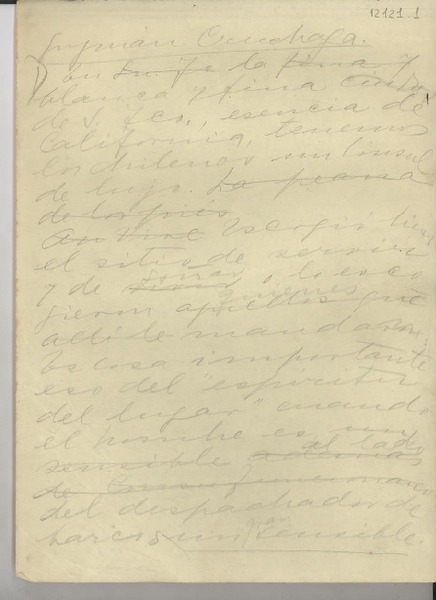 12121.1
Guzmán Cruchaga.
En la fina y
blanca y fina ciudad
de S. Fco., esencia de
California, tenemos
los chilenos un Cónsul
de lujo. La
Escogió bien
el sitio de servir
y de gozar o lo esco
gieron quienes
allí le mandaron.
Es cosa importante
eso del "espíritu
del lugar" cuando
el hombre es un
sensible al lado
del despachador de
barcos un sensible.